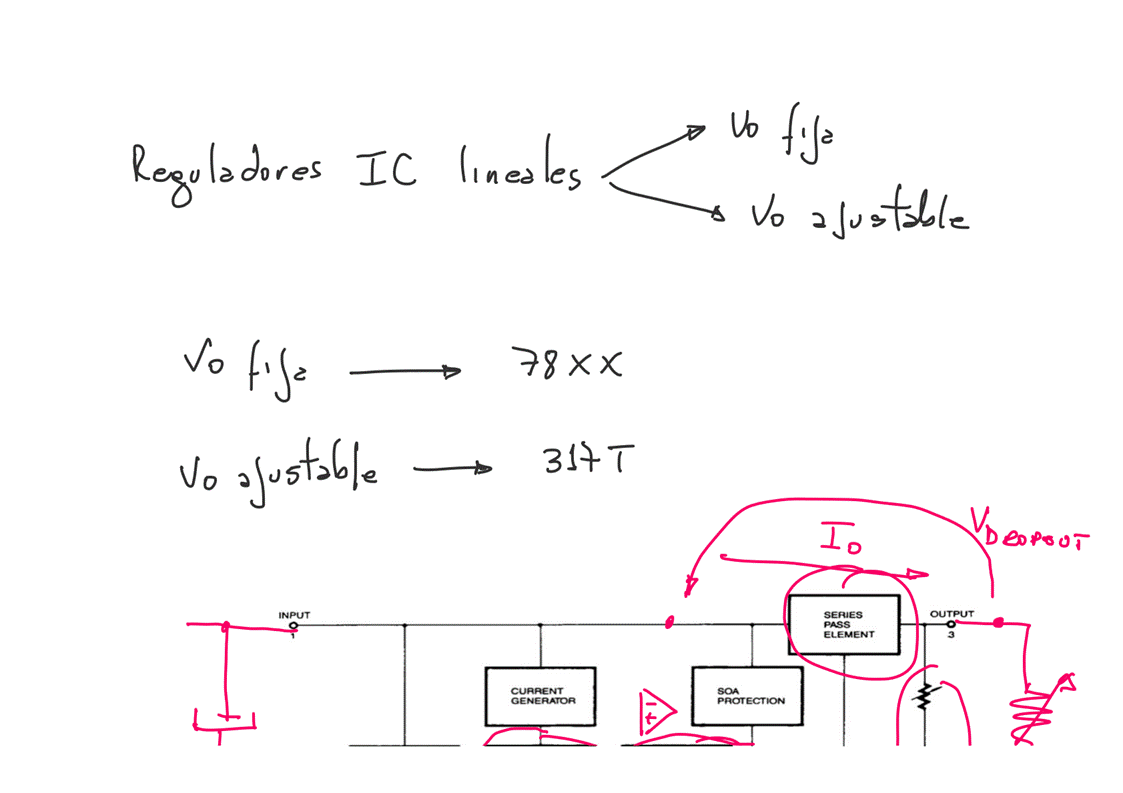 Reguladores IC lineales
Vo fija
Vo ajustable
Vo fija → 78XX
Vo ajustable → 317T
VDROPOUT
IO
INPUT
1
SERIES
PASS
ELEMENT
OUTPUT
3
CURRENT
GENERATOR
- +
SOA
PROTECTION